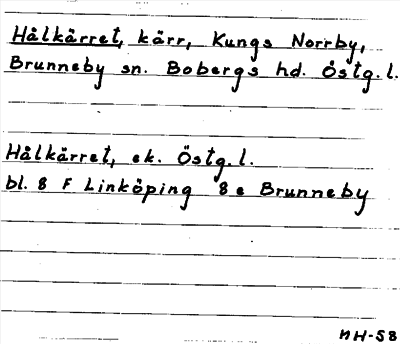 Hålkärret, kärr, Kungs Norrby,
Brunneby sn. Bobergs hd. Östg.l.
Hålkärret, ek. Östg.l.
bl. 8 F Linköping 8e Brunneby
NH-58